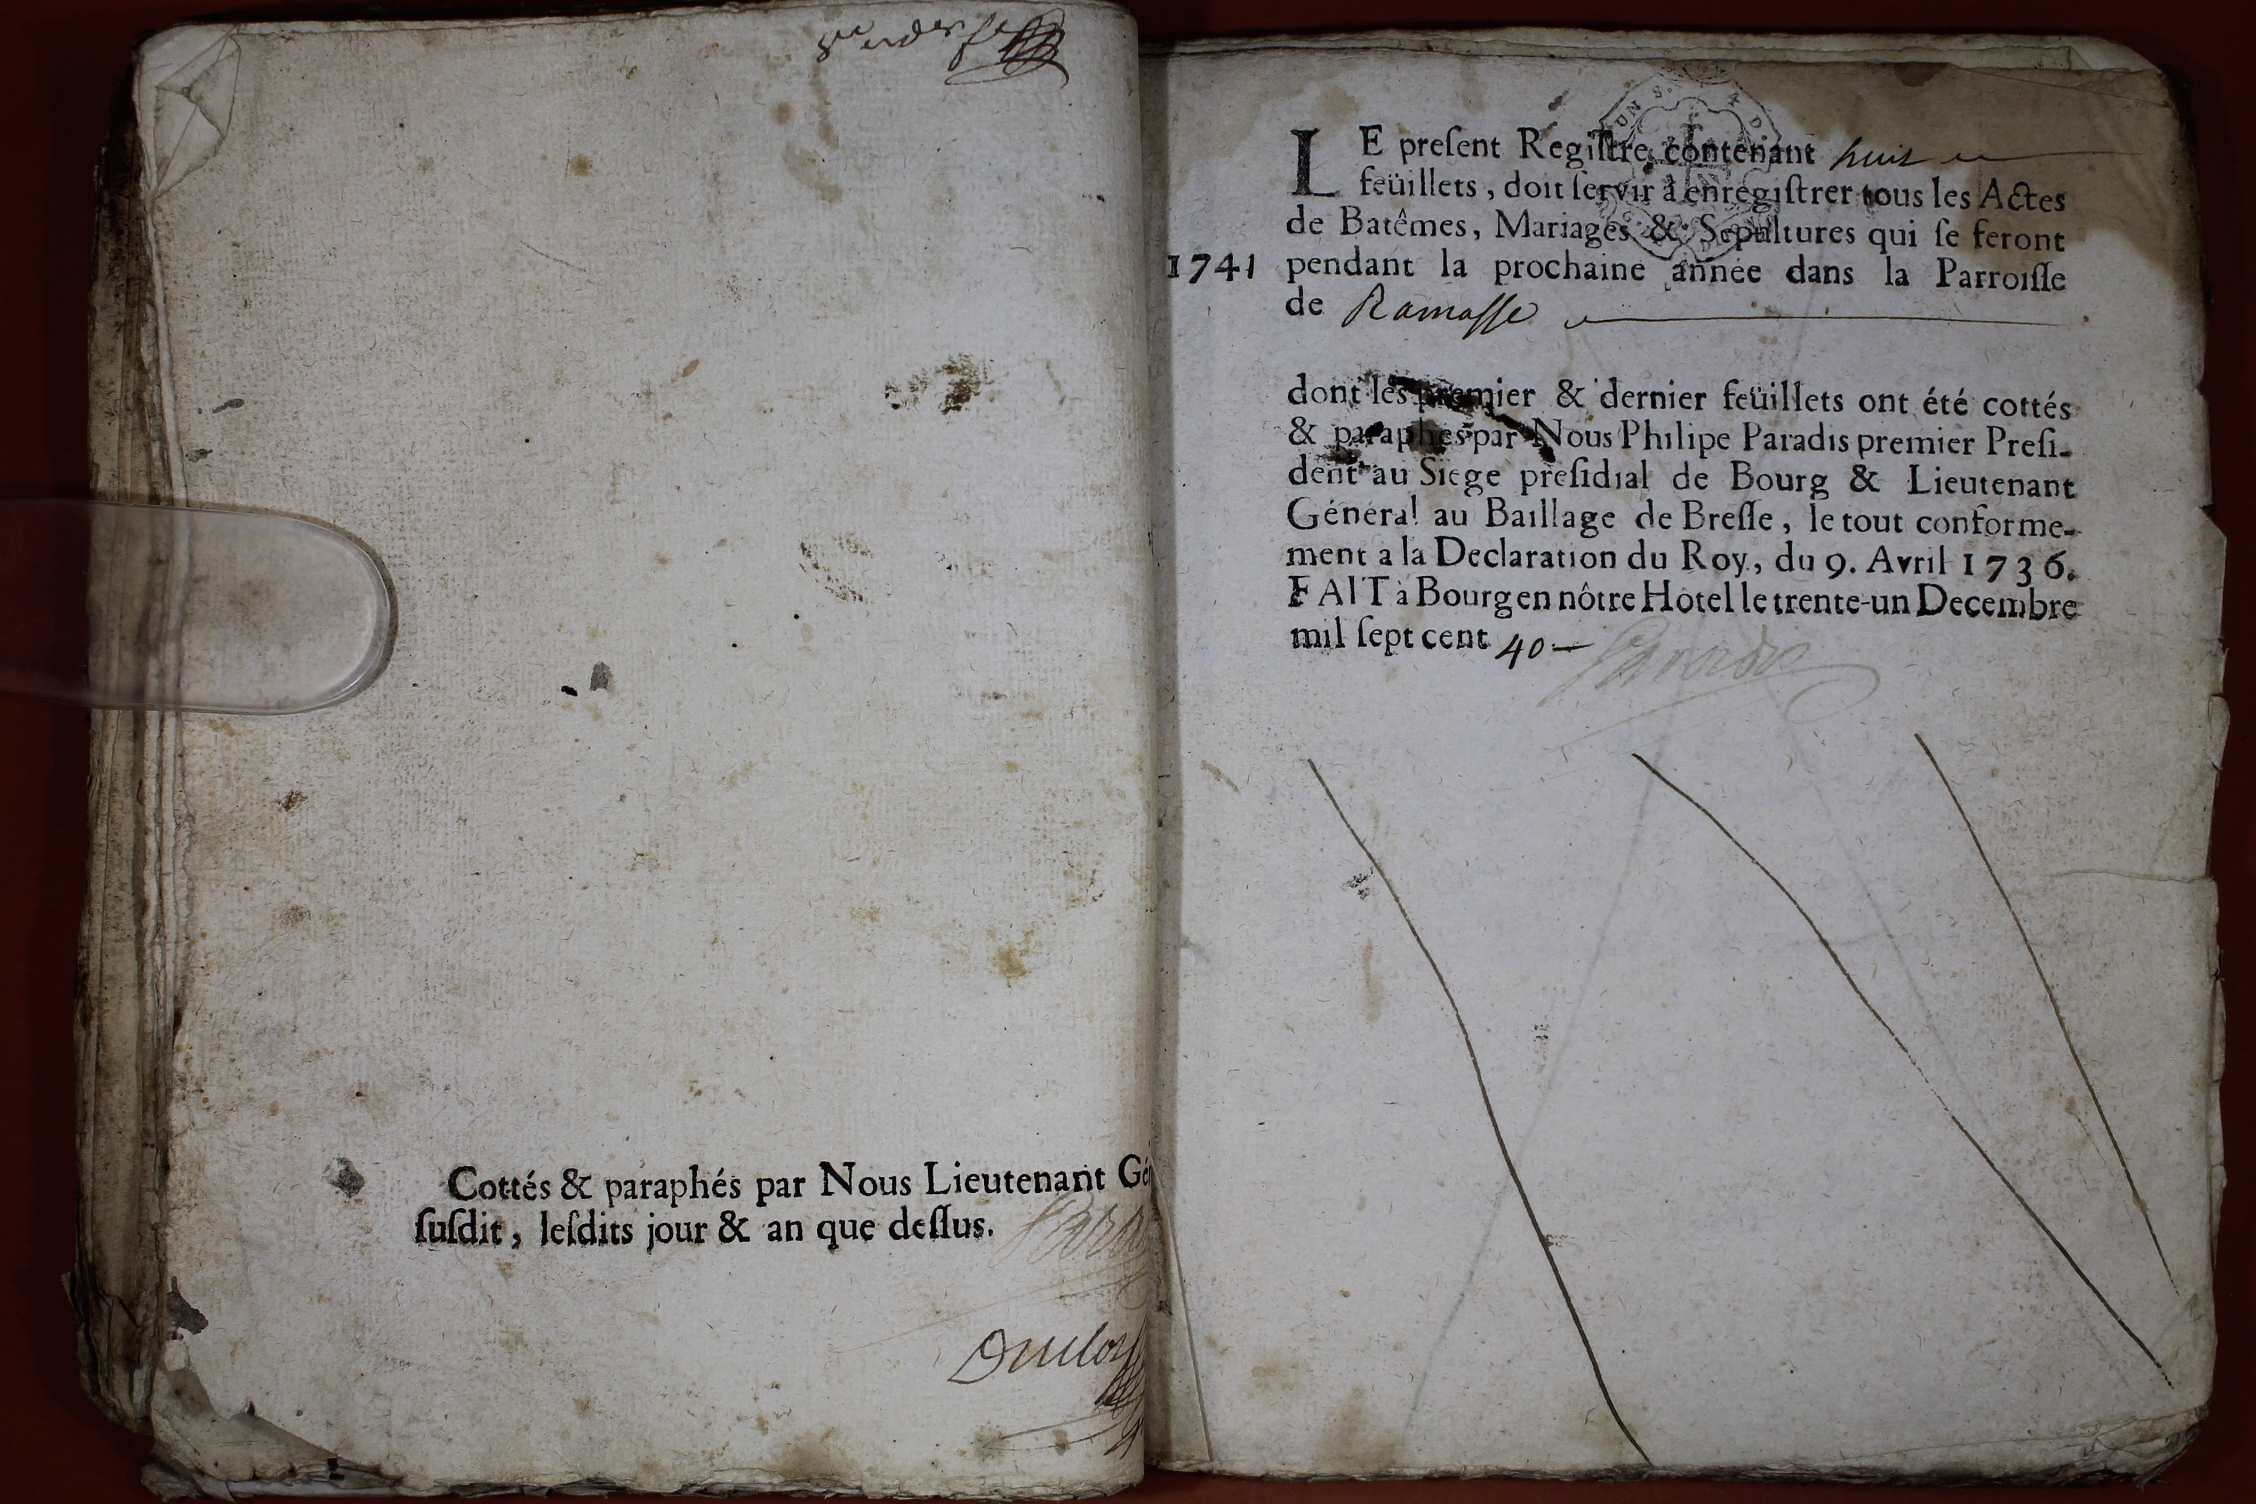 Cottés & paraphés par Nous Lieutenant Gé
ſuſdit, leſdits jour & an que deſſus.
LE preſent Regiſtre, contenant huit
feüillets, doit ſervir à enregiſtrer tous les Actes
de Batêmes, Mariages & Sepultures qui ſe feront
1741 pendant la prochaine année dans la Parroiſſe
de Ramasse
dont les premier & dernier feüillets ont été cottés
& paraphés par Nous Philipe Paradis premier Preſi-
dent au Siege preſidial de Bourg & Lieutenant
Général au Baillage de Breſſe, le tout conforme-
ment a la Declaration du Roy, du 9. Avril 1736.
FAIT à Bourg en nôtre Hotel le trente-un Decembre
mil ſept cent 40 Paradis